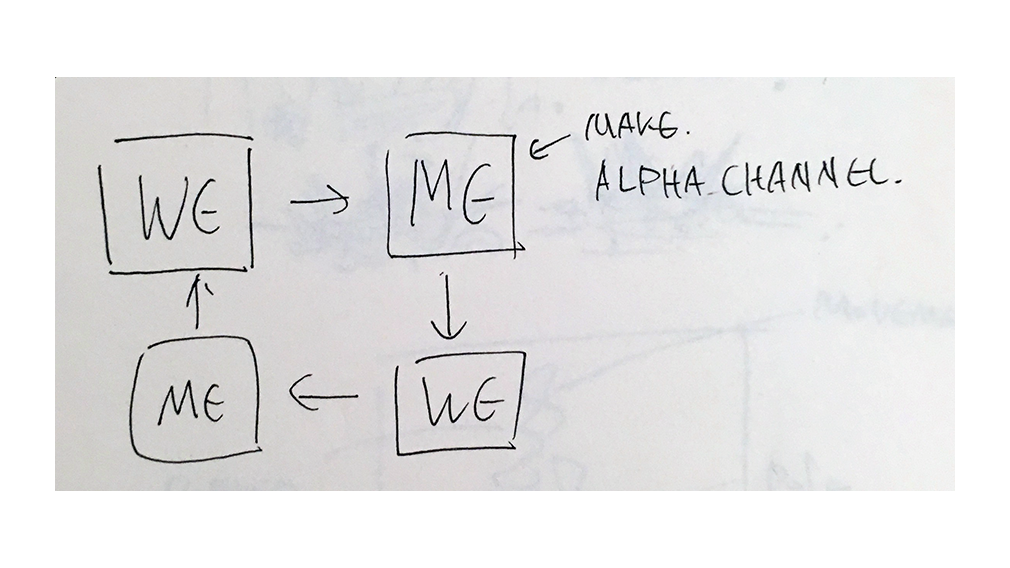 WE
ME
MAKE.
ALPHA CHANNEL.
ME
WE